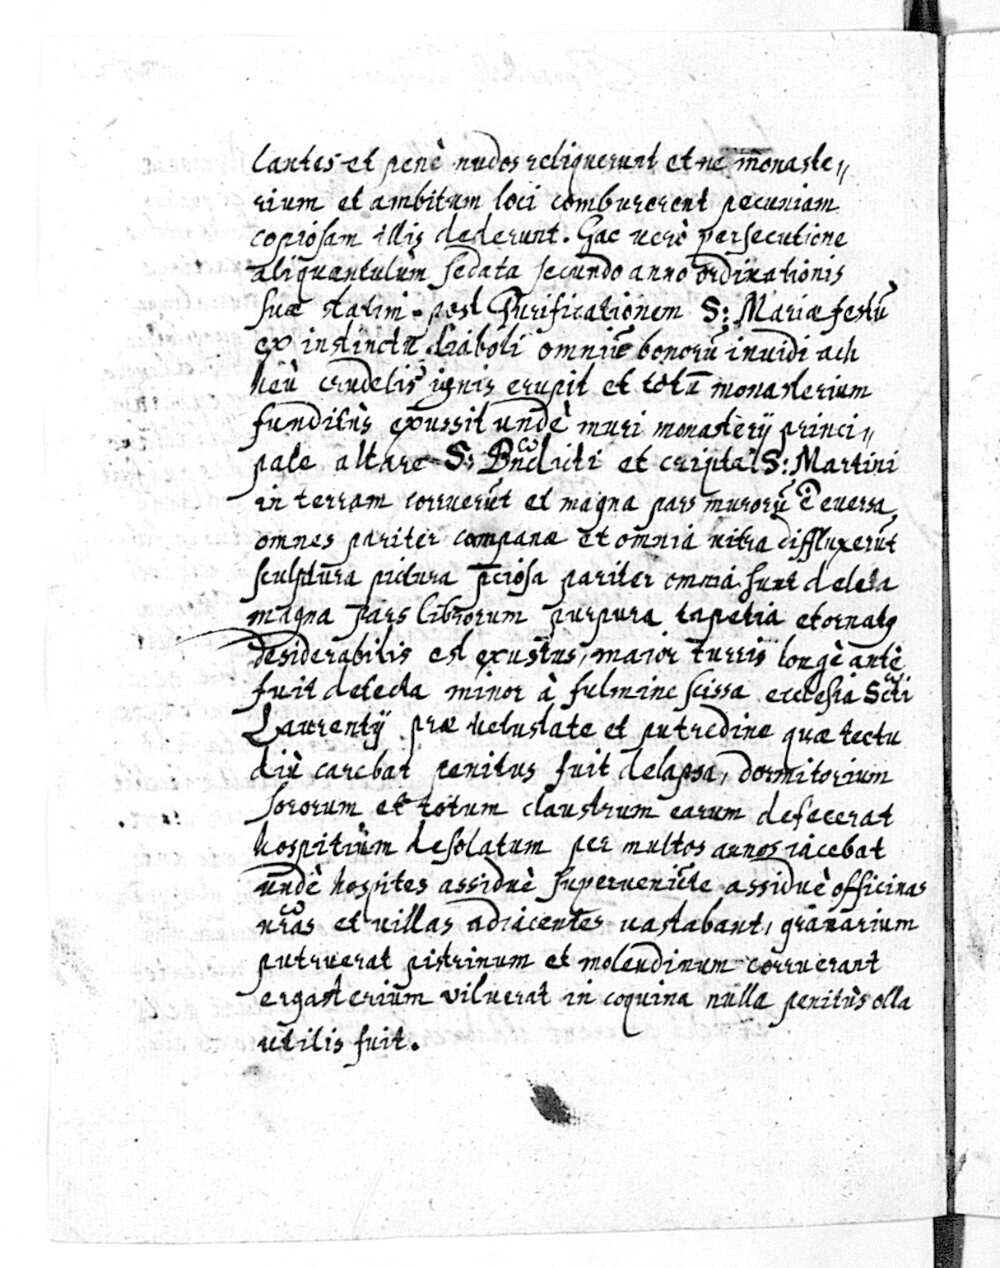 lantes et penè nudos reliquerunt et ne monaste„
rium et ambitum loci comburerent pecuniam
copiosam illis dederunt. Hac verò persecutione
aliquantulùm sedata secundo anno ordinationis
suæ statim post Purificationem S: Mariæ festũ
ex instinctu diaboli omniũ bonorũ inuidi ach
heù crudelis ignis erupit et totũ monasterium
funditùs exussit undè muri monasterij princi„
pale altare S: Bndicti et cripta S: Martini
in terram corruerũt et magna pars murorũ Eeuersa
omnes pariter campanæ et omnia vitra diffluxerũt
sculptura pictura p̄ciosa pariter omnia sunt deleta
magna pars librorum purpura tapetia et ornatꝰ
desiderabilis est exustus, maior turris longè antè
fuit defecta minor à fulmine scissa ecclesia Scti
Laurentÿ præ vetustate et putredine quæ tectu
diù carebat penitus fuit delapsa, dormitorium
sororum et totum claustrum earum defecerat
hospitiũm desolatum per multos annos iacebat
undè hospites assiduè superueniẽte assiduè officinas
nr̃as et villas adiacentes vastabant, granarium
putruerat pistrinum et molendinum corruerant
ergasterium viluerat in coquina nulla penitùs olla
utilis fuit.